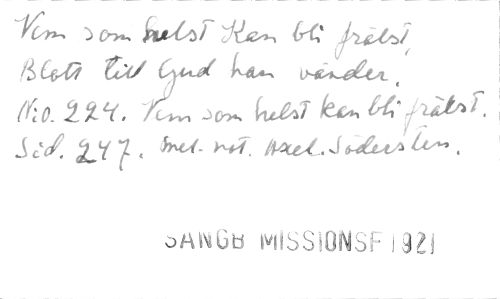 Vem som helst kan bli frälst,
Blott till Gud han vänder.
No. 224. Vem som helst kan bli frälst.
Sid. 247. mel. not. Axel. Södersten.
SANGB MISSIONSF 1921